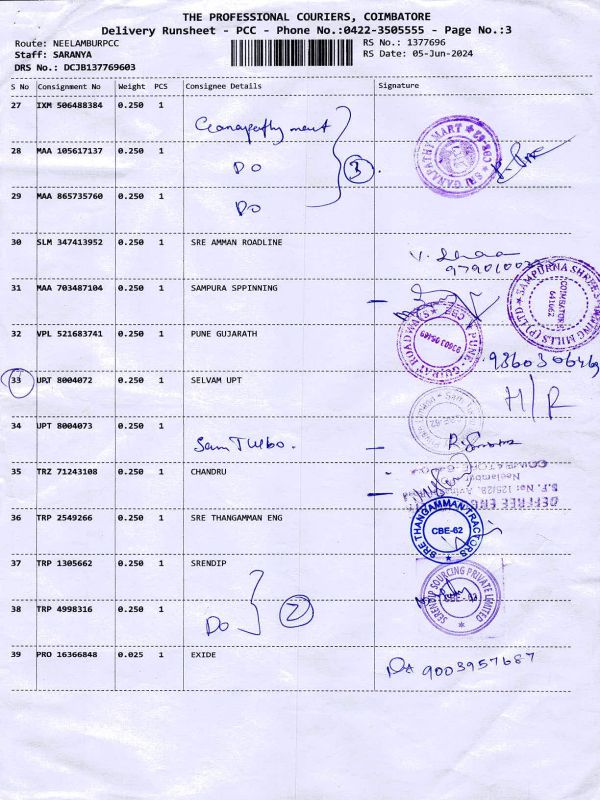 THE PROFESSIONAL COURIERS, COIMBATORE
Delivery Runsheet - PCC - Phone No.:0422-3505555 - Page No.:3
Route: NEELAMBURPCC
Staff: SARANYA
DRS No.: DCJB137769603
RS No.: 1377696
RS Date: 05-Jun-2024
S No Consignment No Weight PCS Consignee Details Signature
27 IXM 506488384 0.250 1
28 MAA 105617137 0.250 1 DO
29 MAA 865735760 0.250 1 DO
3
SRI GANAPATHY MART CBE-62
30 SLM 347413952 0.250 1 SRE AMMAN ROADLINE
31 MAA 703487104 0.250 1 SAMPURA SPPINNING
COIMBATORE 641062
32 VPL 521683741 0.250 1 PUNE GUJARATH
9360306469
33 UPT 8004072 0.250 1 SELVAM UPT
H/R
34 UPT 8004073 0.250 1
Sam Turbo.
35 TRZ 71243108 0.250 1 CHANDRU
GEFFREE ENG
36 TRP 2549266 0.250 1 SRE THANGAMMAN ENG
SRE THANGAMMAN TRACTORS CBE-62
37 TRP 1305662 0.250 1 SRENDIP
SERENDIP SOURCING PRIVATE LIMITED
38 TRP 4998316 0.250 1 DO
2
39 PRO 16366848 0.025 1 EXIDE
9003957687